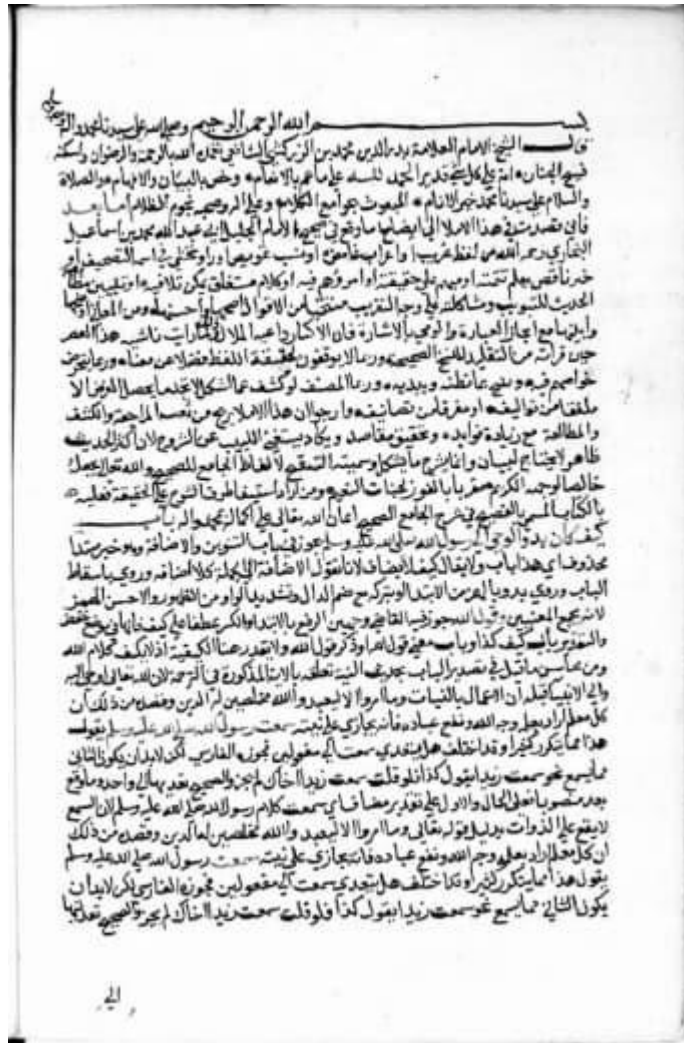 بسم الله الرحمن الرحيم وصلى الله على سيدنا محمد واله
قال الشيخ الامام العلامة بدر الدين محمد بن الزركشي الشافعي تغمده الله بالرحمة والرضوان واسكنه
فسيح الجنان انه على كل شيء قدير الحمد لله على ما عم بالانعام وخص بالبيان والافهام والصلاة
والسلام على سيدنا محمد خير الانام المبعوث بجوامع الكلام وعلى اله وصحبه نجوم الظلام اما بعد
فاني قصدت في هذا الاملا الى ايضاح ما وقع في صحيح الامام الجليل ابي عبد الله محمد بن اسماعيل
البخاري رحمه الله من لفظ غريب او اعراب غامض او نسب عويص او راو يخشى في اسمه التصحيف او
خبر ناقص يعلم تتمته او مبهم علم حقيقته او امر وهم فيه او كلام مستغلق يمكن تلافيه او تبيين مطابقة
الحديث للتبويب ومشاكلته على وجه التقريب منتخبا من الاقوال اصحها واحسنها ومن المعاني اوضحها
وابينها مع ايجاز العبارة والرمز بالاشارة فان الاكثار داعية الملال
حين قراته من التقليد للنسخ الصحيحة وربما لا يوفقون لحقيقة اللفظ فضلا عن معناه وربما
خواصهم فيه
ملفقا من تواليف او مفرقا من تصانيف وارجو ان هذا الاملا يريح من تعب المراجعة والكشف
والمطالعة مع زيادة فوايد وتحقيق مقاصد ويكاد يستغني به اللبيب عن الشروح لان اكثر الحديث
ظاهر لا يحتاج لبيان وانما يشرح ما يشكل وسميته التنقيح لالفاظ الجامع الصحيح والله تعالى يجعله
خالصا لوجهه الكريم مقربا بالفوز بجنات النعيم ومن اراد استيفا طرق الشرح على الحقيقة فعليه
بالكتاب المسمى بالفصيح في شرح الجامع الصحيح اعان الله تعالى على اكماله بمحمد واله باب
كيف كان بدو الوحي الى رسول الله صلى الله عليه وسلم يجوز في باب التنوين والاضافة وهو خبر مبتدا
محذوف اي هذا باب ولا يقال كيف لا يضاف لانا نقول الاضافة الى الجملة كلا اضافة وروي باسقاط
الباب وروي بدو بالهمز من الابتدا وبتركه مع ضم الدال وتشديد الواو من الظهور والاحسن الهمز
لانه يجمع المعنيين وقول الله جوز فيه القاضي وجهين الرفع بالابتداء والكسر عطفا على كيف فانها في موضع خفض
والتقدير باب كيف كذا وباب معنى قول الله او ذكر قول الله ولا يقدر هنا الكيفية اذ لا يكيف كلام الله
ومن محاسن ما قيل في تصدير الباب بحديث النية تعلقه بالاية المذكورة في الترجمة لان الله تعالى اوحى اليه
والى الانبيا قبله ان الاعمال بالنيات وما امروا الا ليعبدوا الله مخلصين له الدين وقصده من ذلك ان
كل معلم اراد بعلمه وجه الله ونفع عباده فانه يجازى على نيته سمعت رسول الله صلى الله عليه وسلم يقول
هذا مما يتكرر كثيرا وقد اختلف هل يتعدى سمعت الى مفعولين فجوزه الفارسي لكن لا بد ان يكون الثاني
مما يسمع نحو سمعت زيدا يقول كذا فلو قلت سمعت زيدا اخاك لم يجز والصحيح تعديها الى واحد وما وقع
بعده منصوبا فعلى الحال والاول على تقدير مضاف اي سمعت كلام رسول الله صلى الله عليه وسلم لان السمع
لا يقع على الذوات بدليل قوله تعالى وما امروا الا ليعبدوا الله مخلصين له الدين وقصده من ذلك
ان كل معلم اراد بعلمه وجه الله ونفع عباده فانه يجازى على نيته سمعت رسول الله صلى الله عليه وسلم
يقول هذا مما يتكرر كثيرا وقد اختلف هل يتعدى سمعت الى مفعولين فجوزه الفارسي لكن لا بد ان
يكون الثاني مما يسمع نحو سمعت زيدا يقول كذا فلو قلت سمعت زيدا اخاك لم يجز والصحيح تعديها
الى